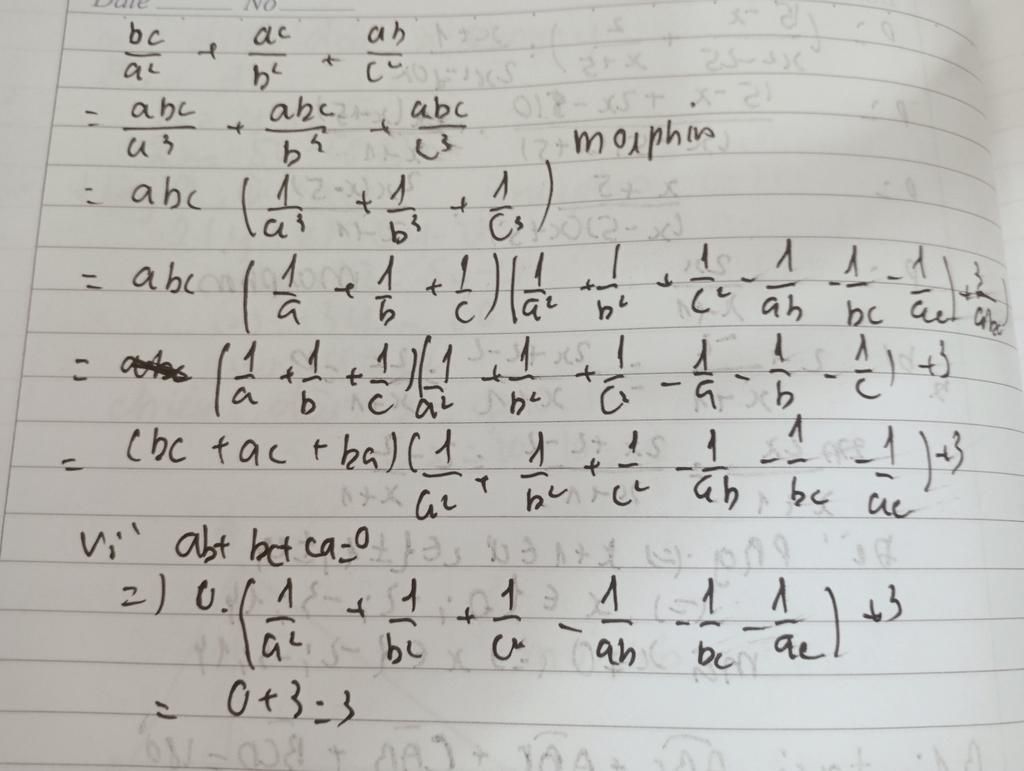 Date No
bc/a² + ac/b² + ab/c²
= abc/a³ + abc/b³ + abc/c³
morphin
= abc (1/a³ + 1/b³ + 1/c³)
= abc (1/a + 1/b + 1/c)(1/a² + 1/b² + 1/c² - 1/ab - 1/bc - 1/ac) + 3/abc)
= (1/a + 1/b + 1/c)(1/a² + 1/b² + 1/c² - 1/a - 1/b - 1/c) + 3
= (bc + ac + ba)(1/a² + 1/b² + 1/c² - 1/ab - 1/bc - 1/ac) + 3
Vì ab + bc + ca = 0
=) 0.(1/a² + 1/b² + 1/c² - 1/ab - 1/bc - 1/ac) + 3
= 0 + 3 = 3